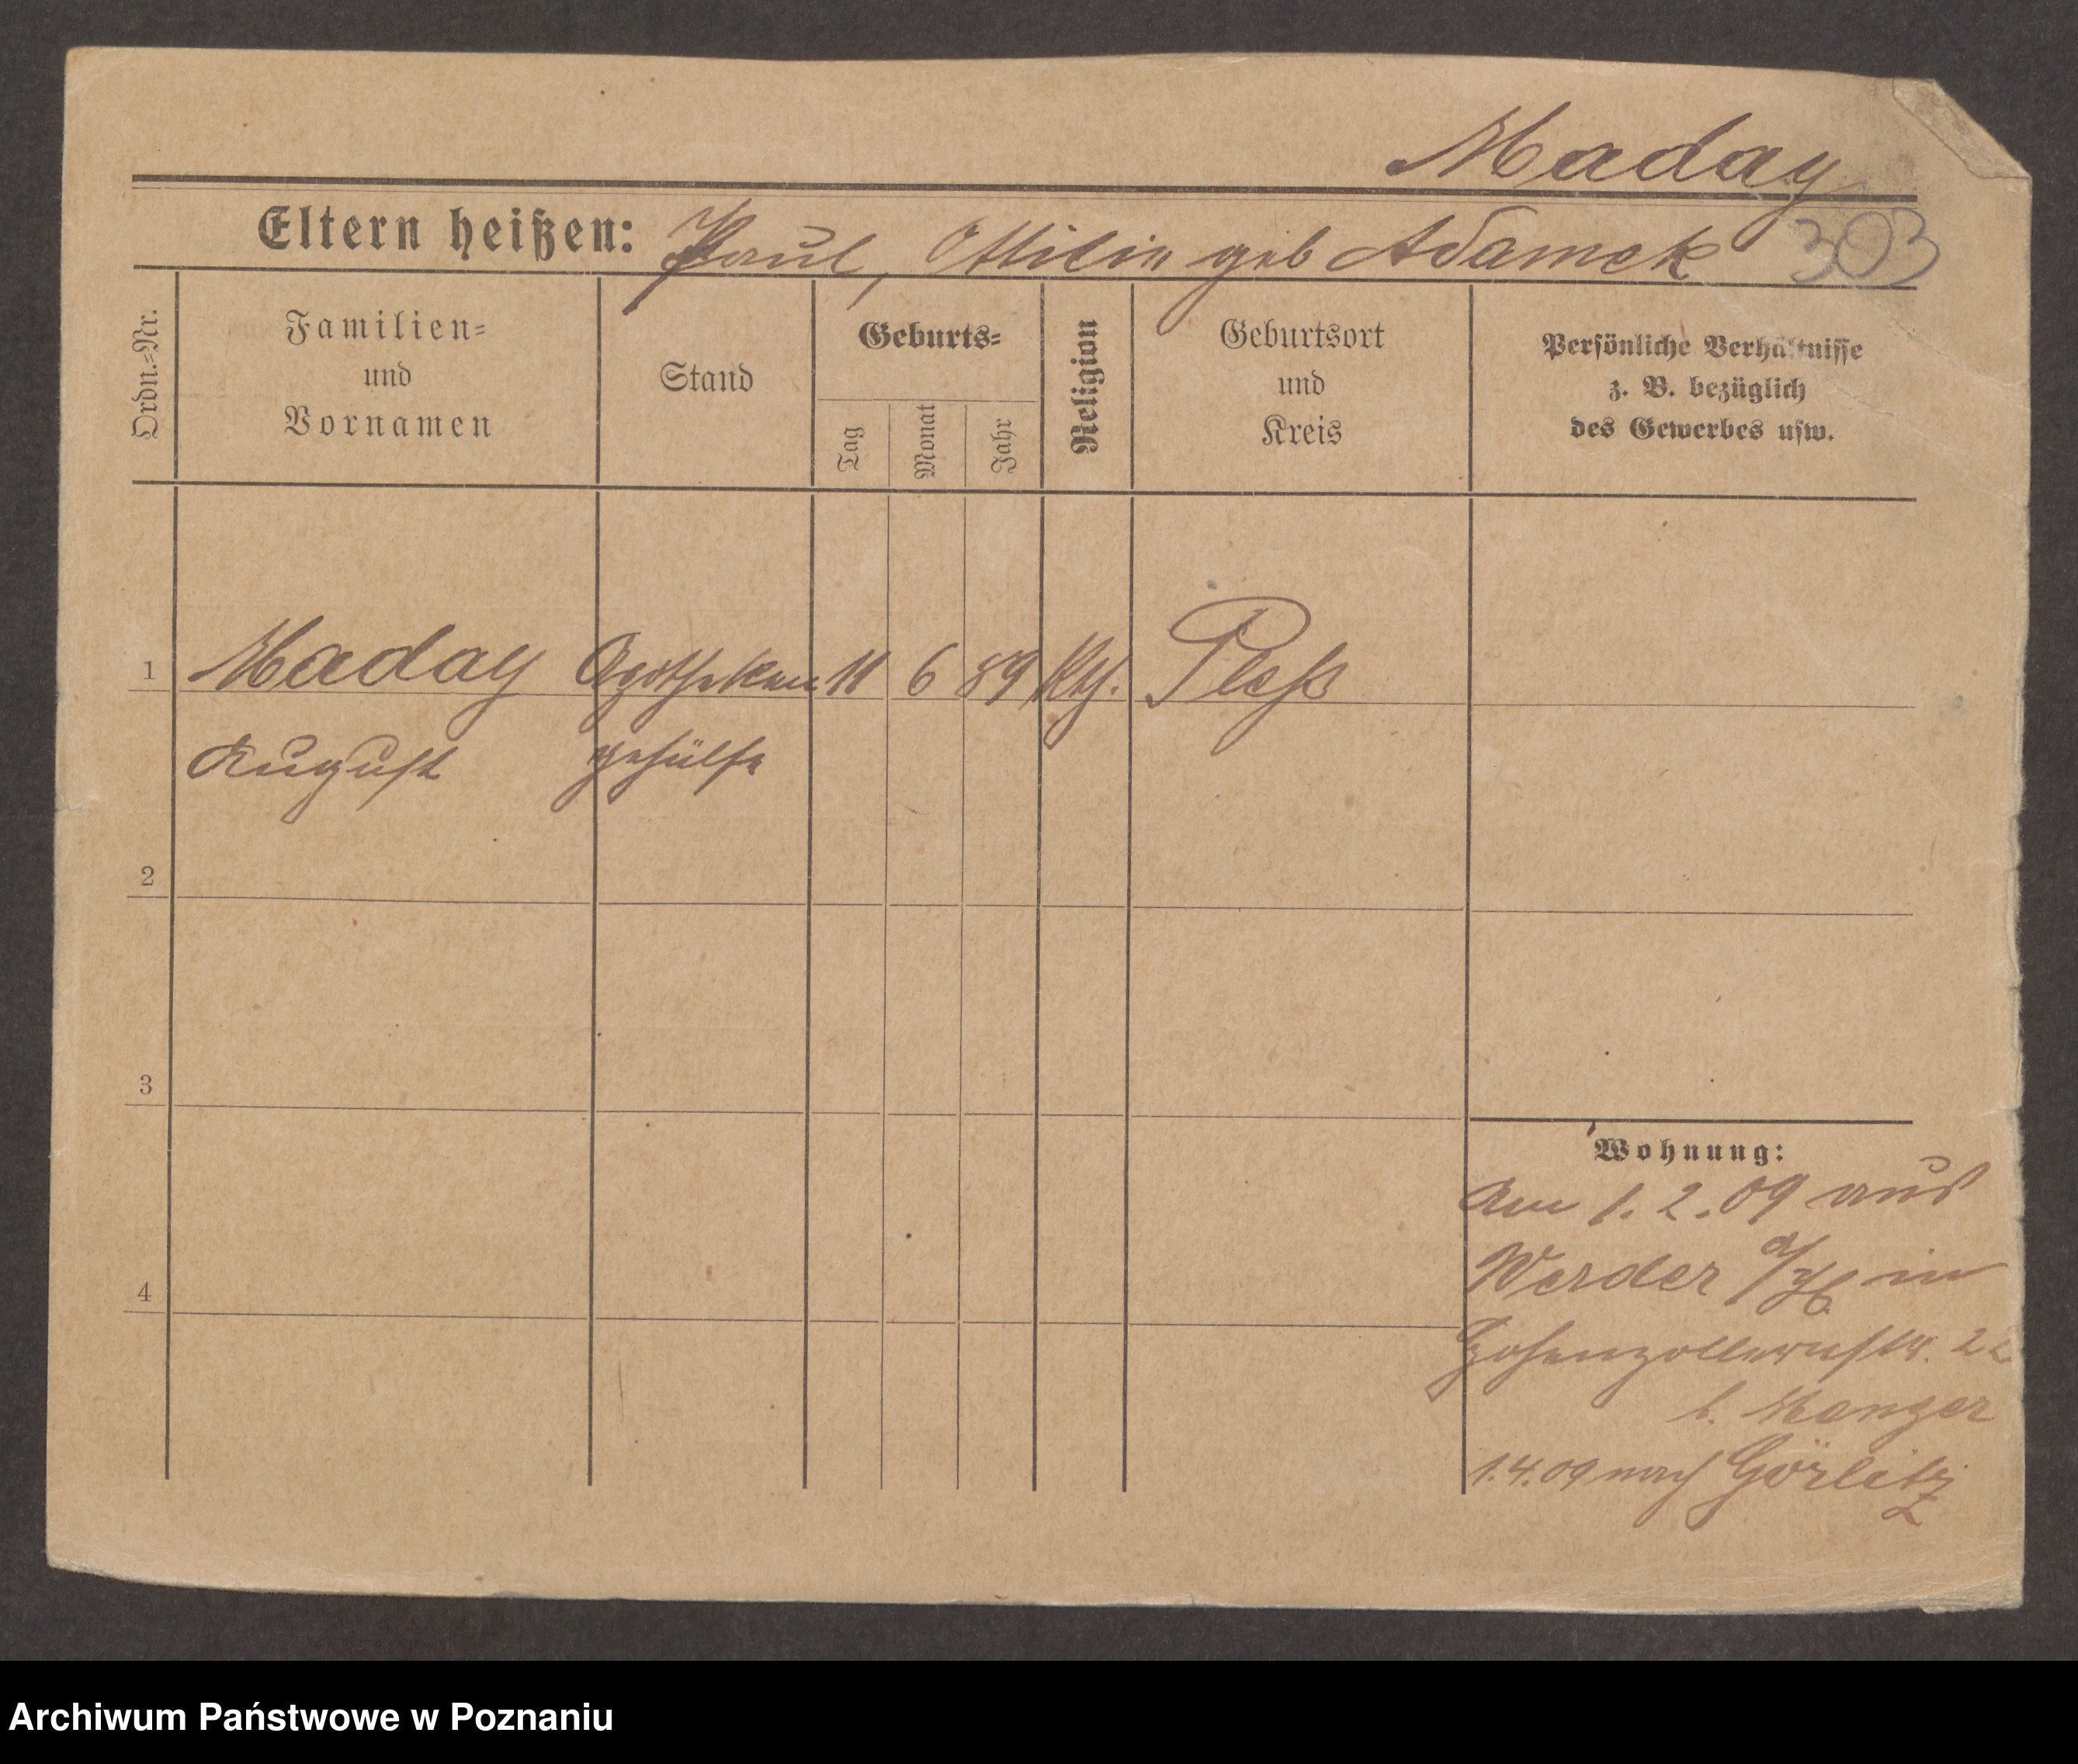 Maday
Eltern heißen: Paul, Ottilie geb Adamek 303
Ordn.-Nr.
Familien-
und
Vornamen
Stand
Geburts-
Tag
Monat
Jahr
Religion
Geburtsort
und
Kreis
Persönliche Verhältnisse
z. B. bezüglich
des Gewerbes usw.
1 Maday Apotheken 11 6 89 Kth. Pleß
August gehülfe
2
3
4
Wohnung:
Am 1. 2. 09 aus
Werder a/H in
Hohenzollernstr. 22
b. Manger
1.4.09 nach Görlitz
Archiwum Państwowe w Poznaniu